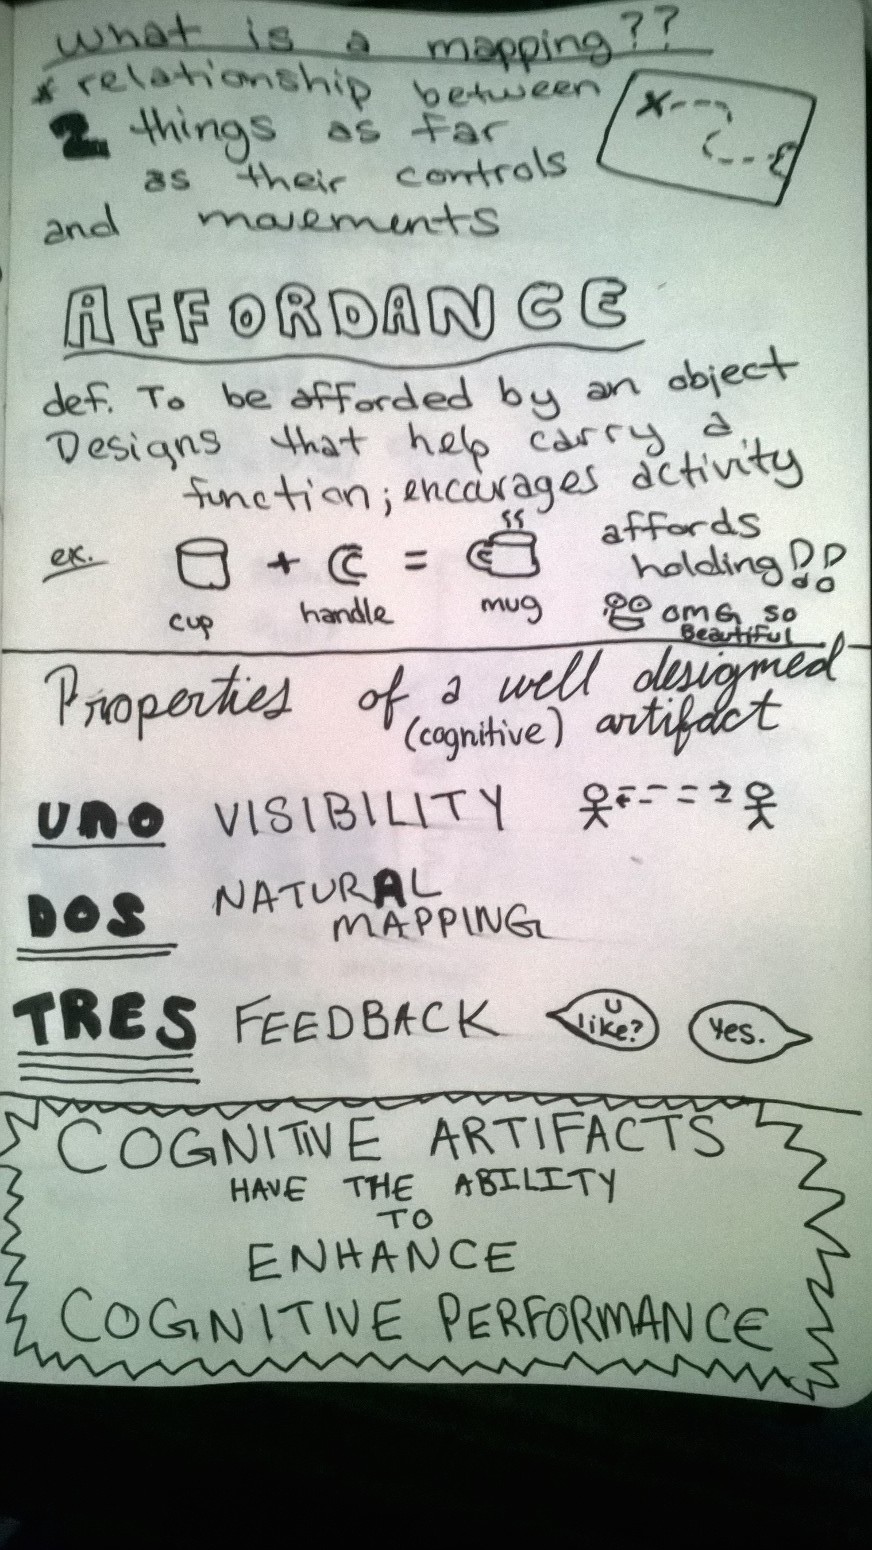 What is a mapping??
* relationship between
2 things as far
as their controls
and movements
AFFORDANCE
def. To be afforded by an object
Designs that help carry a
function; encourages activity
ex. + = affords
holding!!
cup handle mug OMG SO
Beautiful
Properties of a well designed
(cognitive) artifact
UNO VISIBILITY
DOS NATURAL
MAPPING
TRES FEEDBACK u like? Yes.
COGNITIVE ARTIFACTS
HAVE THE ABILITY
TO
ENHANCE
COGNITIVE PERFORMANCE